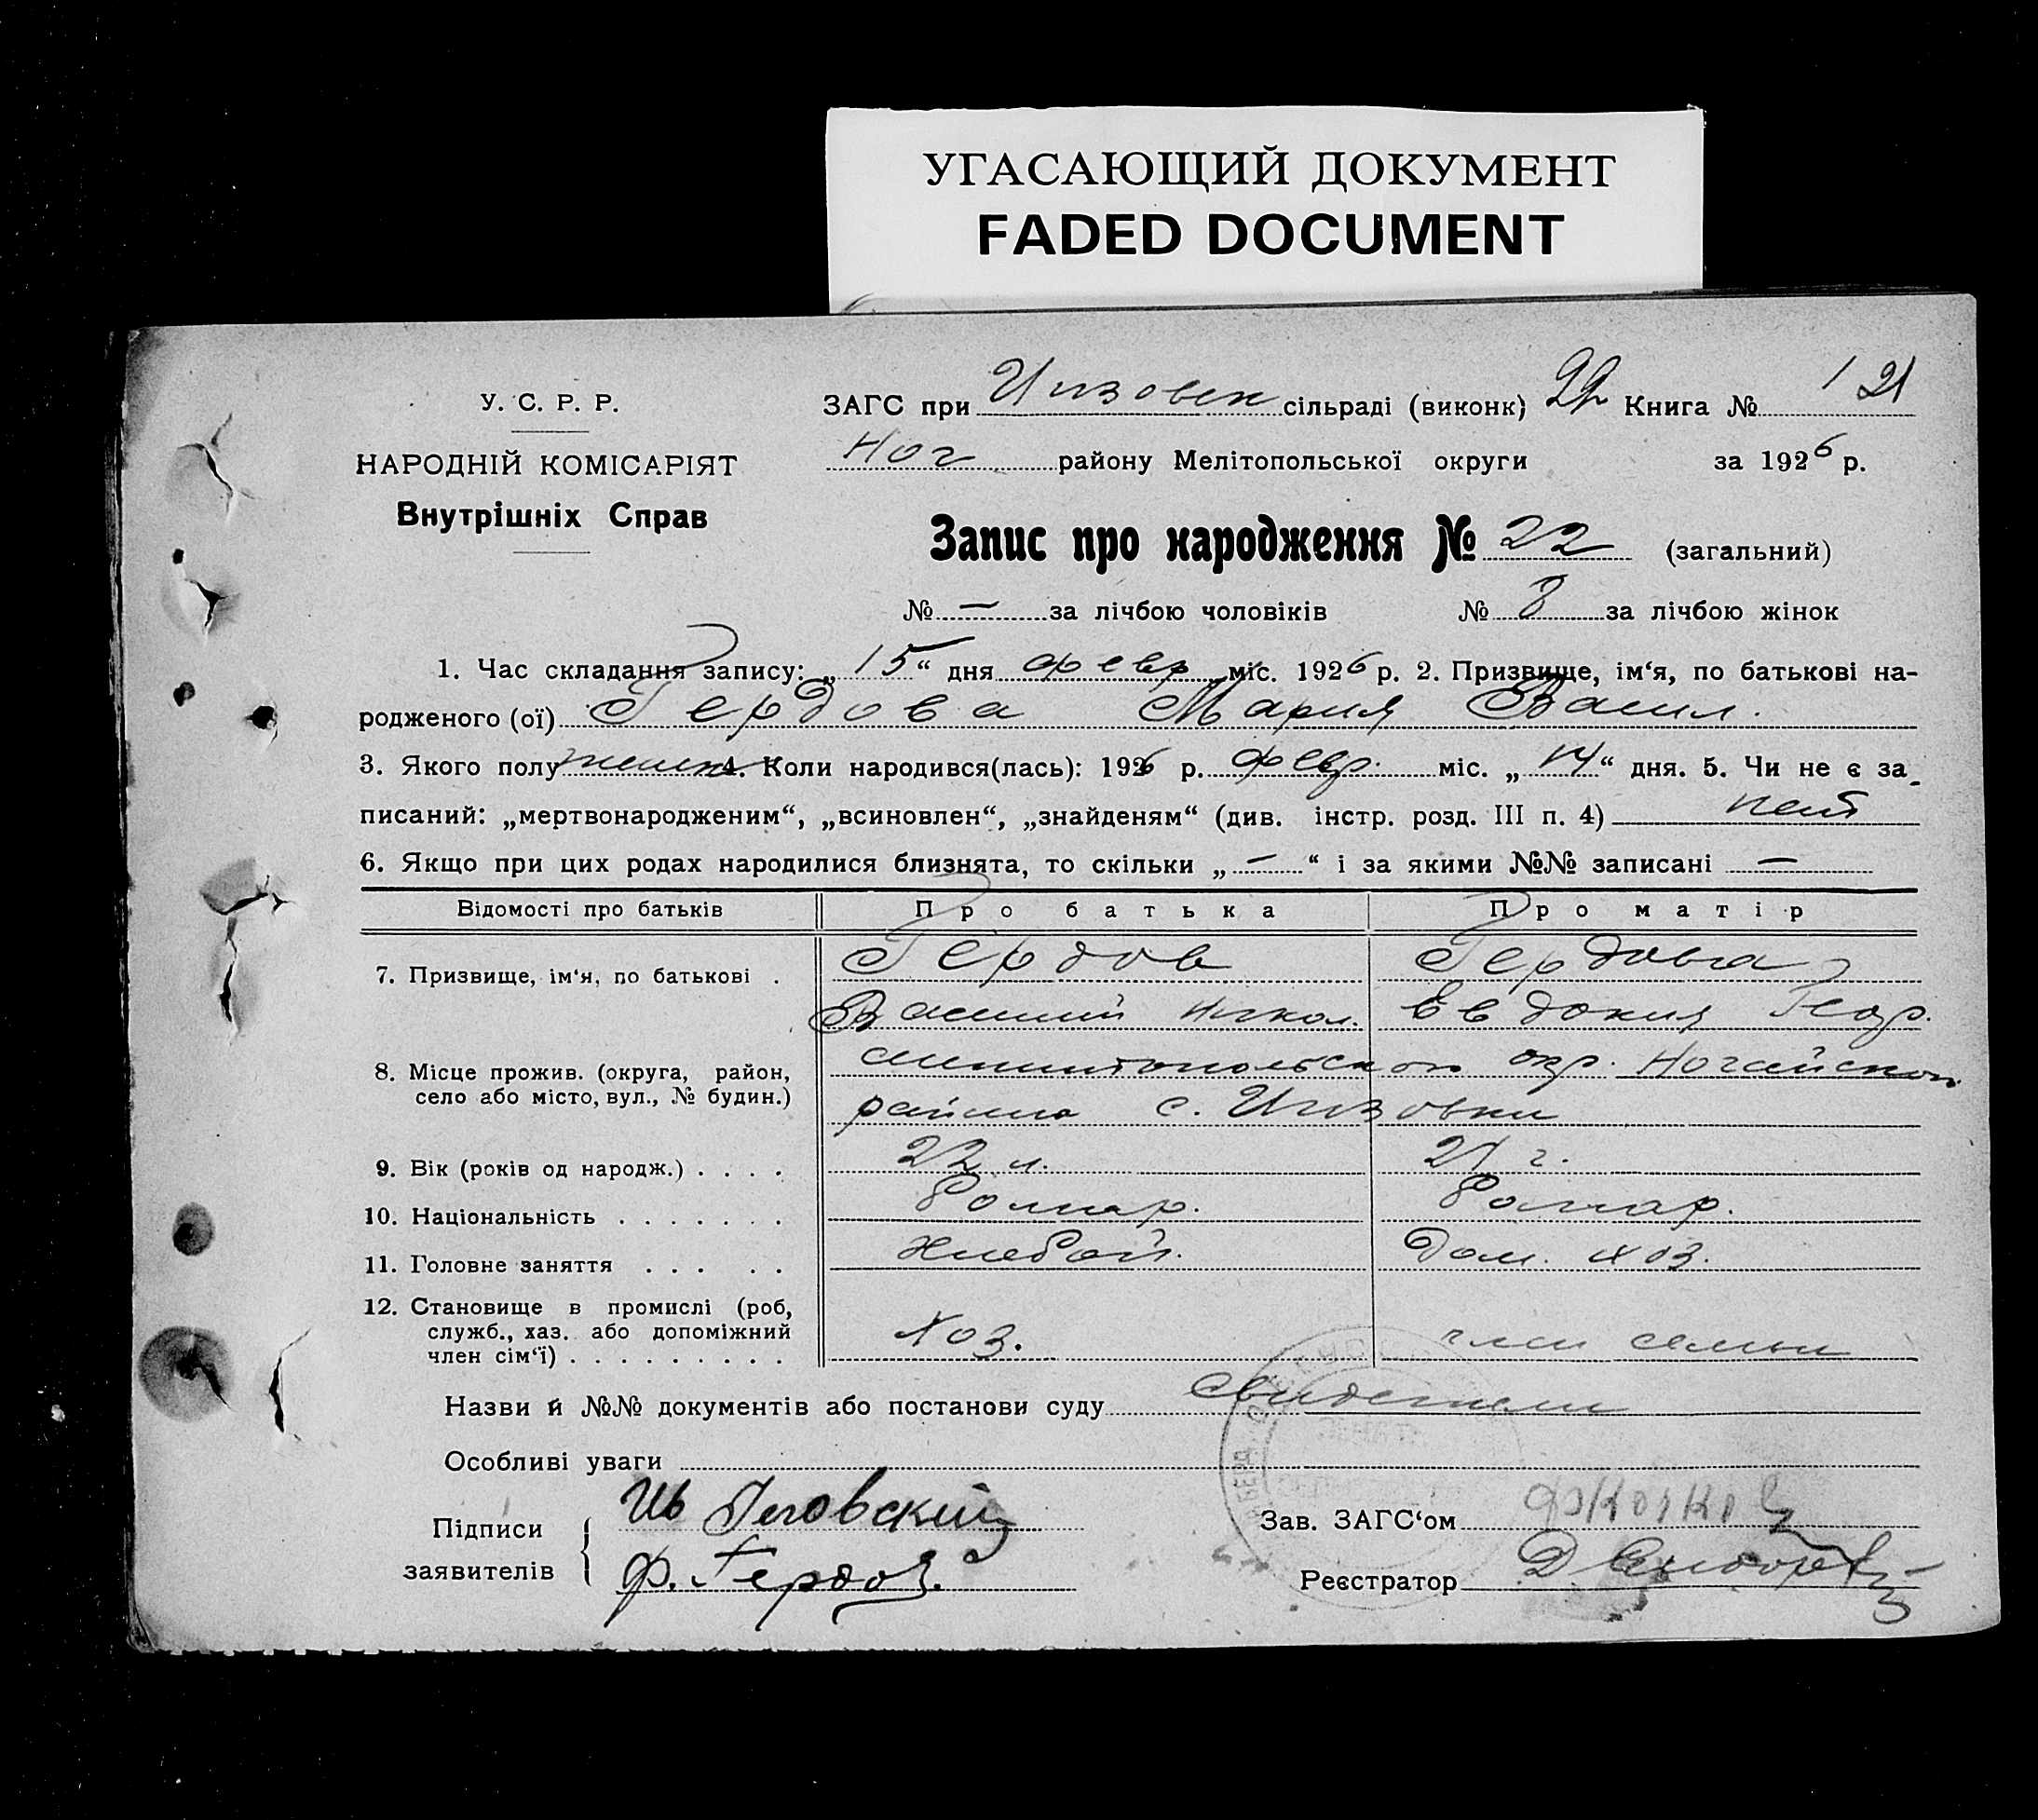 УГАСАЮЩИЙ ДОКУМЕНТ
FADED DOCUMENT
У. С. Р. Р.
НАРОДНІЙ КОМІСАРІЯТ
Внутрішніх Справ
ЗАГС при Инзовск сільраді (виконк) 22 Книга № 1 21
Ног району Мелітопольської округи за 1926 р.
Запис про народження № 22 (загальний)
№ — за лічбою чоловіків № 8 за лічбою жінок
1. Час складання запису: „15“ дня февр міс. 1926 р. 2. Призвище, ім‘я, по батькові на-
родженого (ої) Гердова Мария Васил.
3. Якого полу женск 4. Коли народився(лась): 1926 р. февр. міс. „14“ дня. 5. Чи не є за-
писаний: „мертвонародженим“, „всиновлен“, „знайденям“ (див. інстр. розд. III п. 4) нет
6. Якщо при цих родах народилися близнята, то скільки „—“ і за якими №№ записані —
Відомості про батьків Про батька Про матір
7. Призвище, ім‘я, по батькові . Гердов Гердова
Василий Никол. Евдокия Геор.
8. Місце прожив. (округа, район, село або місто, вул., № будин.) Мелитопольской окр. Ногайского
района с. Инзовки
9. Вік (років од народж.) . . . . 22 л. 21 г.
10. Національність . . . . . . . Болгар. Болгар.
11. Головне заняття . . . . . Хлебоп. Дом. хоз.
12. Становище в промислі (роб,
служб., хаз. або допоміжний
член сім‘ї) . . . . . . . . . Хоз. член семьи
Назви й №№ документів або постанови суду свидетели
Особливі уваги
Підписи
заявителів
Ив
Ф. Гердов.
Зав. ЗАГС‘ом
Реєстратор